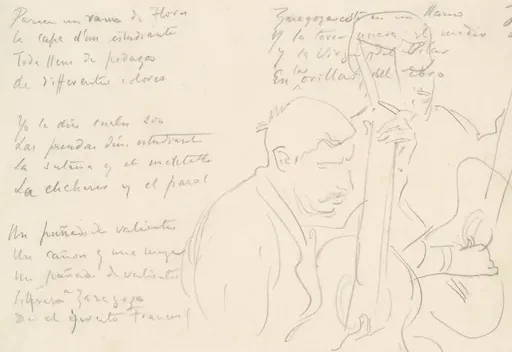 Parecen un ramo de flores
la capa d'un estudiante
Toda llena de pedazos
de differentes colores
Yo le diré cuales son
Las prendas d'un estudiante
La sotana y el
La y el
Un puñado de valientes
Un cañon y una mujer
Un puñado de valientes
Zaragoza
De el ejercito Frances
Zaragoza esta en un llano
Y la torre nueva el medio
y la Virgen del Pilar
En las orillas del Ebro